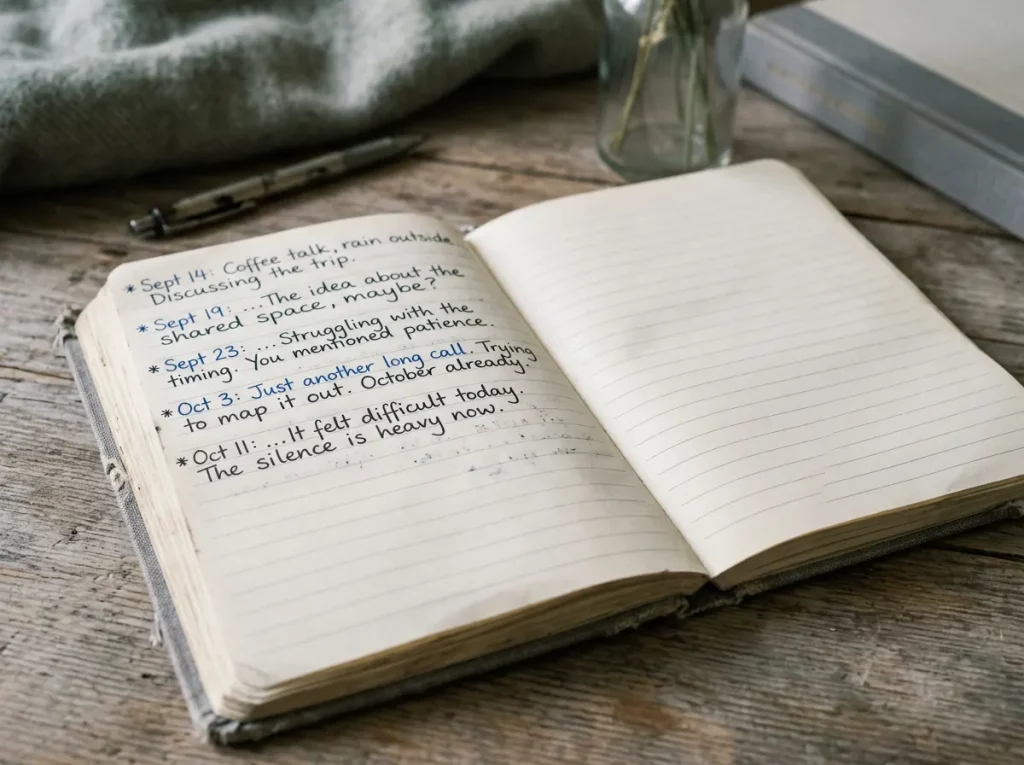 * Sept 14: Coffee talk, rain outside
Discussing the trip.
* Sept 19: ...The idea about the
shared space, maybe?
* Sept 23: ....Struggling with the
timing. You mentioned patience.
* Oct 3: Just another long call. Trying
to map it out. October already.
* Oct 11: ...It felt difficult today.
The silence is heavy now.